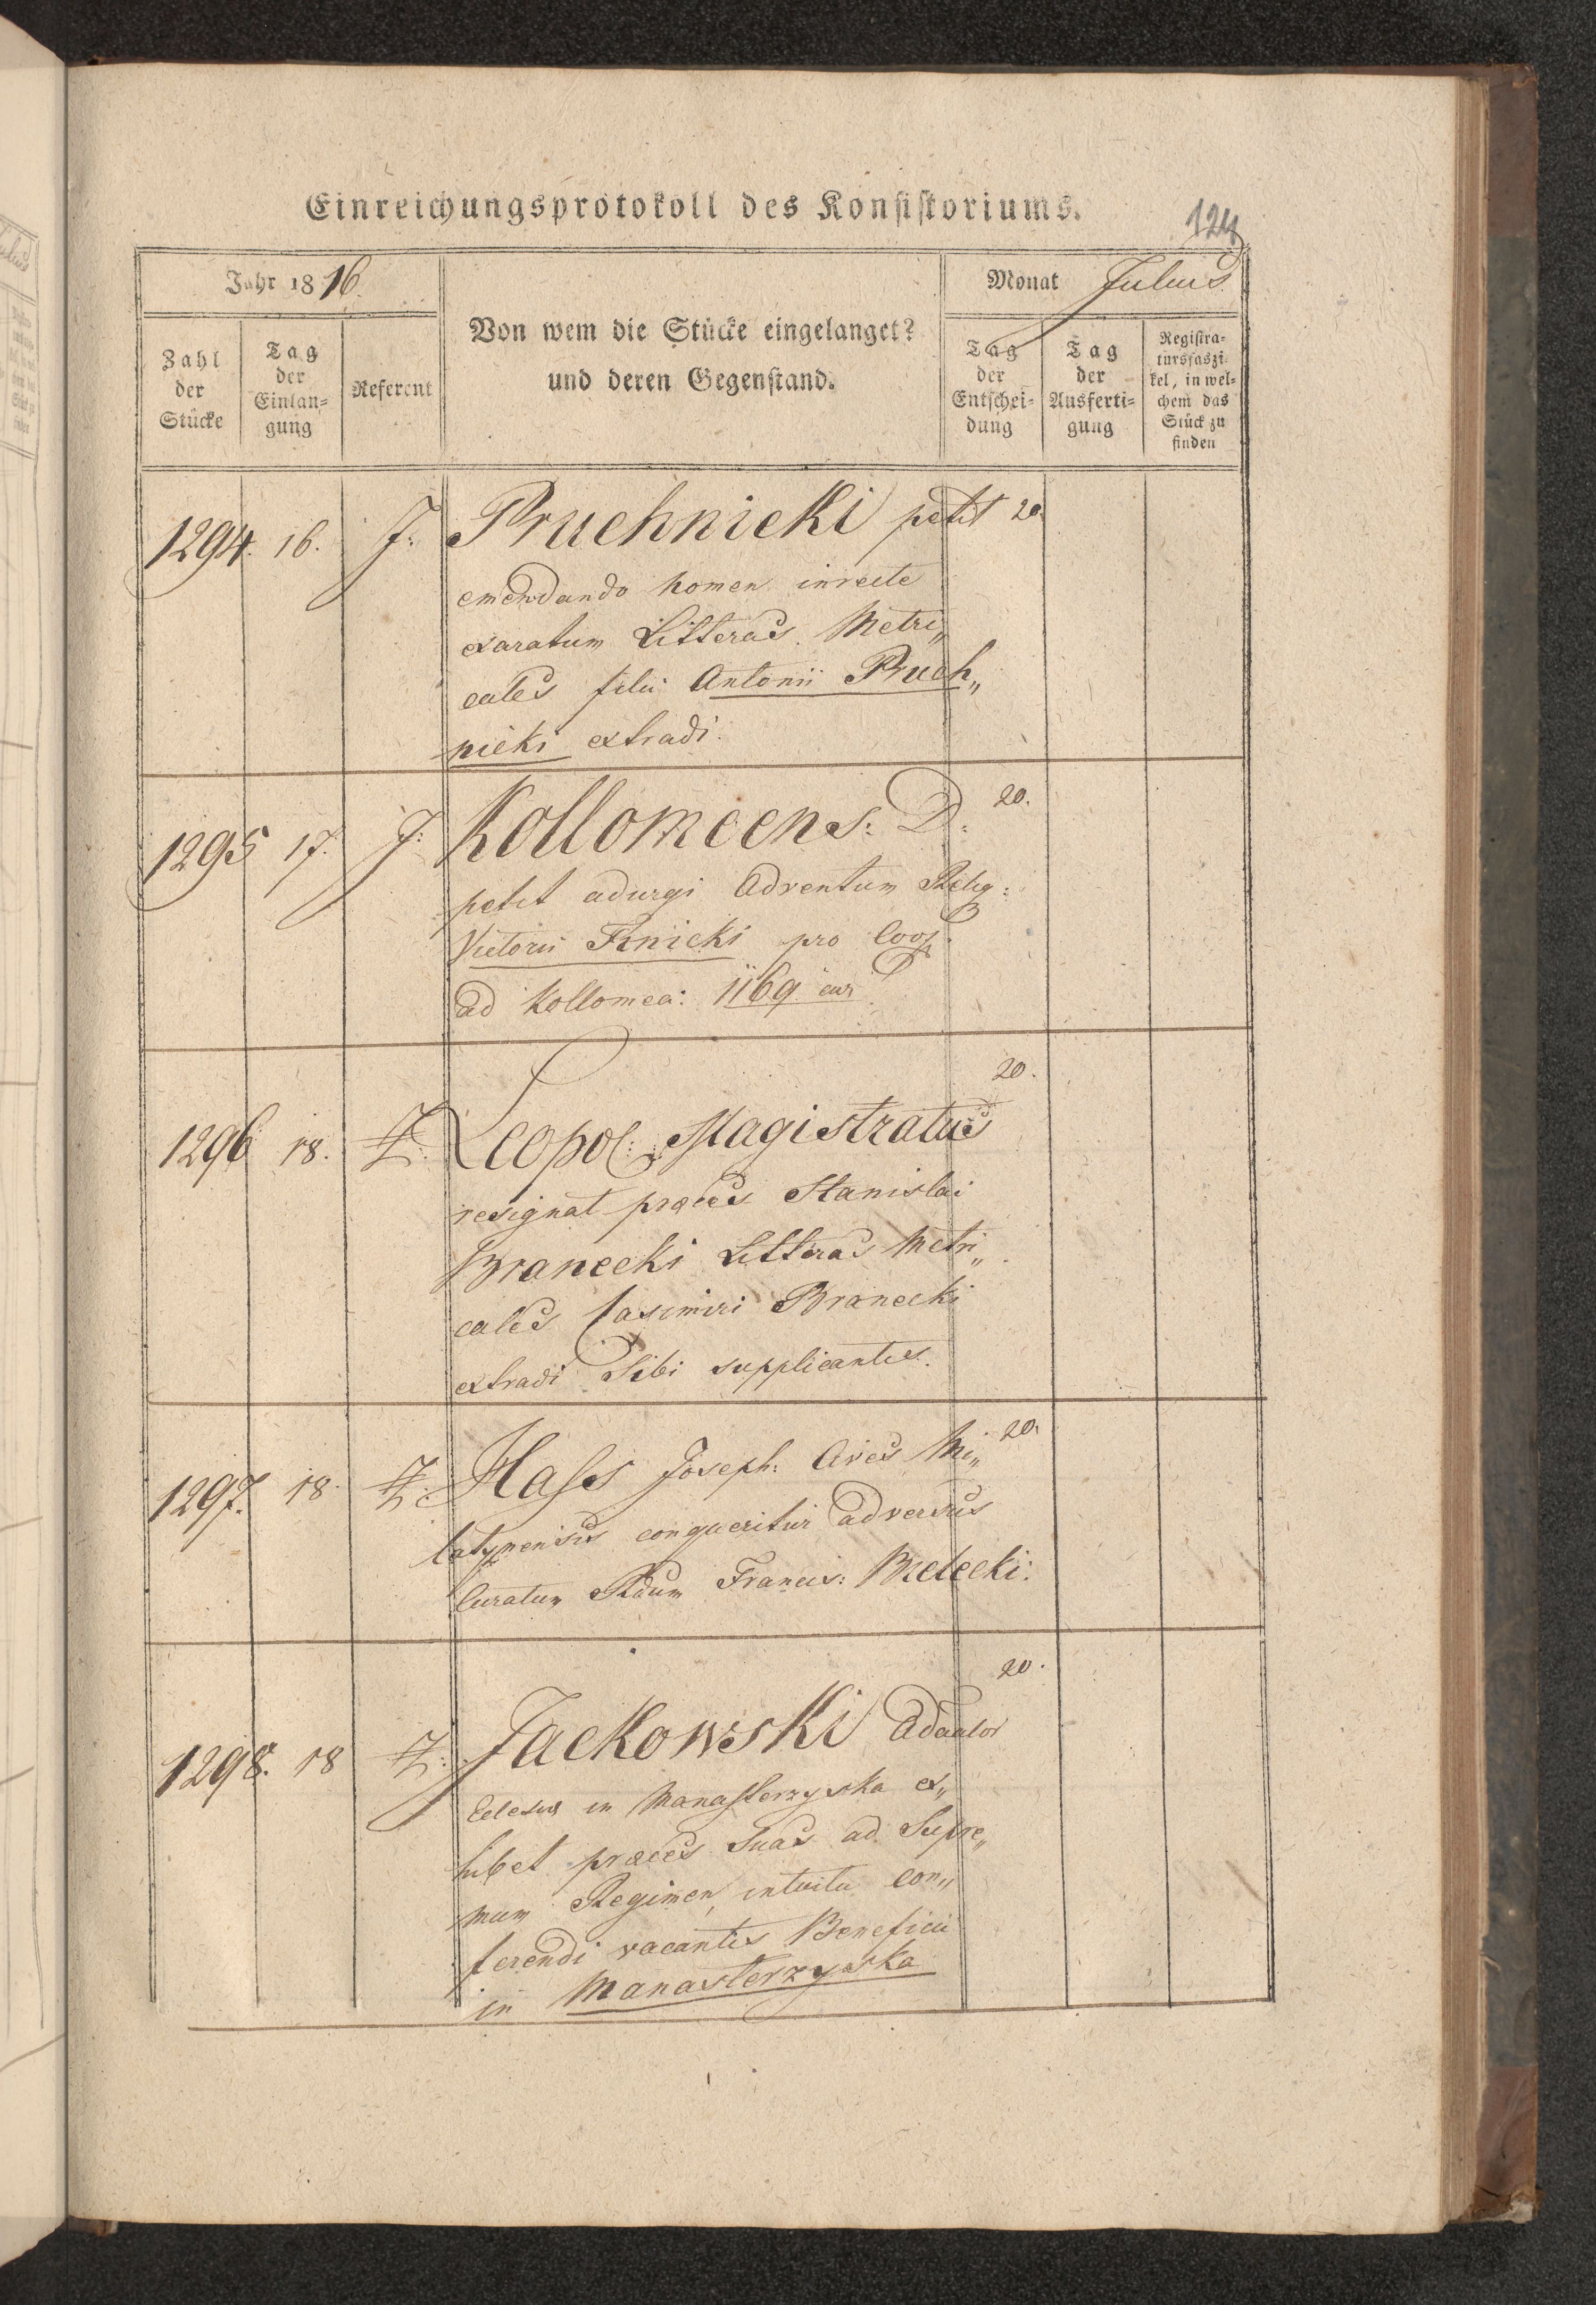 Einreichungsprotokoll des Konsistoriums.
124
Jahr 1816.
Monat Julius
Zahl der Stücke
Tag der Einlan-gung
Referent
Von wem die Stücke eingelanget?
und deren Gegenstand.
Tag der Entschei-dung
Tag der Ausferti-gung
Registra-tursfaszi-kel, in wel-chem das Stück zu finden
1294. 16. J: Pruchnicki petit 20.
emendando Nomen inrecte
exaratum Litteras Metri„
cales filii Antonii Pruch„
nicki extradi.
1295 17. J: Kollomeens: D: 20.
petit adurgi Adventum Relig:
Victorii Finicki pro Coop.
ad Kollomea: 1169
20.
1296 18. Z: Leopol: Magistratus
resignat præces Stanislai
Branecki Litteras Metri„
cales Casimiri Branecki
extradi Sibi supplicantis.
1297. 18. Z: Hass Joseph: Cives Mi„ 20.
latynensis conqueritur adversus
Curatum Rdum Francis: Bielecki:
20.
1298. 18 Z: Jackowski Adaalor
Ecclesiæ in Manasterzyska ex„
hibet præces Suas ad Supre„
mum Regimen, intuitu con„
ferendi vacantis Beneficii
in Manasterzyska